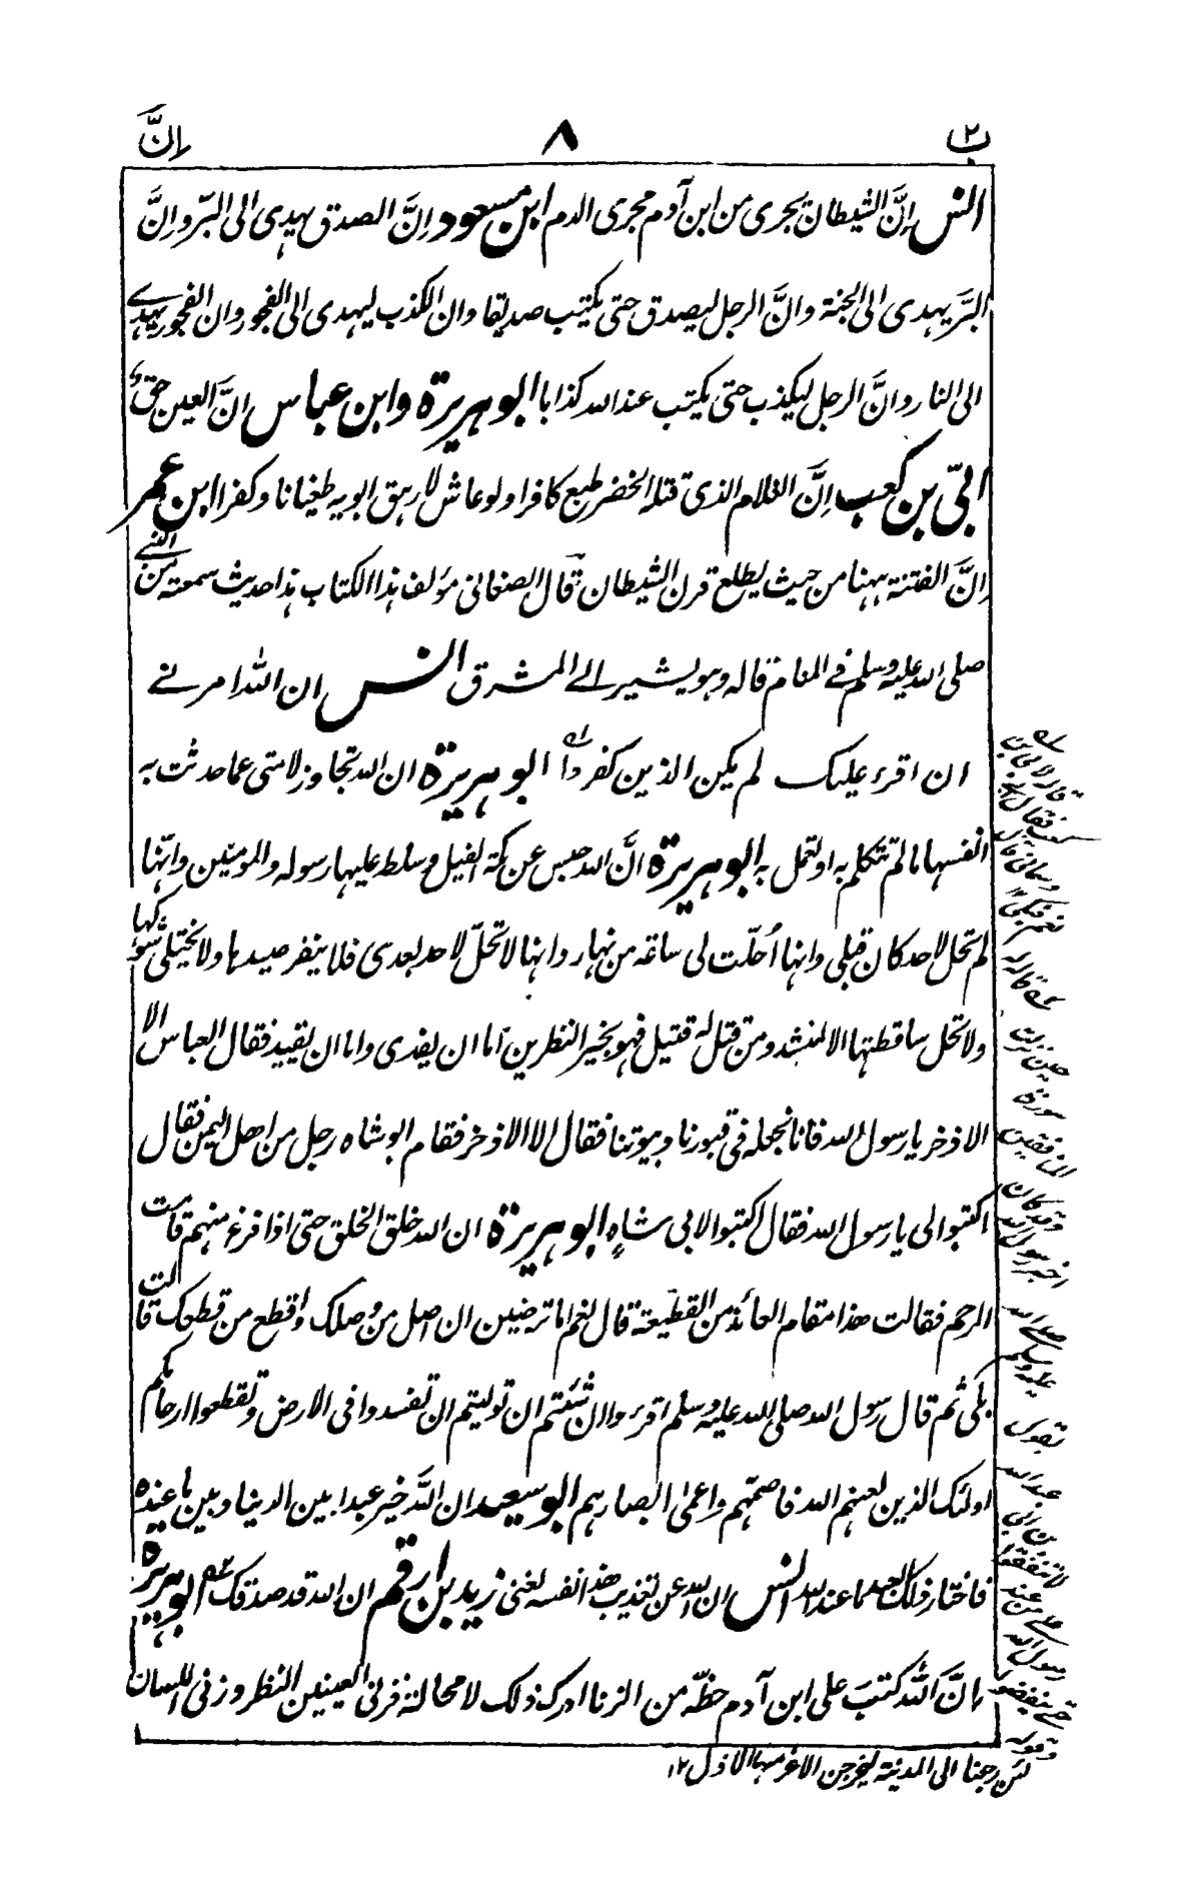 ب٢ ٨ اِنَّ
انس اِنَّ الشيطان يجرى من ابن آدم مجرى الدم ابن مسعود اِنَّ الصدق يهدى الى البرّ و اِنَّ
البرّ يهدى الى الجنة و انَّ الرجل ليصدق حتى يكتب صديقا و ان الكذب ليهدى الى الفجور و ان الفجور يهدے
الى النار و انَّ الرجل ليكذب حتى يكتب عند الله كذابا ابو هريرة و ابن عباس انَّ العين حقٌ
ابىّ بن كعب اِنَّ الغلام الذى قتله الخضر طبع كافرا و لو عاش لارهق ابويه طغيانا و كفرا ابن عمر
اِنَّ الفتنة ههنا من حيث يطلع قرن الشيطان قال الصغانى مؤلف هذا الكتاب هذا حديث سمعته من النبے
صلى الله عليه وسلم فے المنام قاله و هو يشير الے المشرق انس ان الله امر نے
ان اقرء عليك لم يكن الذين كفروا ابو هريرة ان الله تجاوز لامتى عما حدثت به
انفسها ما لم تتكلم به او تعمل به ابو هريرة انَّ الله حبس عن مكة الفيل و سلط عليها رسوله و المؤمنين و انّها
لم تحل لاحد كان قبلى و انها اُحلّت لى ساعة من نهار و انها لا تحلّ لاحد بعدى فلا ينفر صيدها و لا يختلى شوكها
و لا تحل ساقطتها الا لمنشد و من قتل له قتيل فهو بخير النظرين اما ان يفدى و اما ان يقيد فقال العباس الا
الاذخر يا رسول الله فانا نجعله فى قبورنا و بيوتنا فقال الا الاذخر فقام ابو شاه رجل من اهل اليمن فقال
اكتبوا لى يا رسول الله فقال اكتبوا لابى شاهٍ ابو هريرة ان الله خلق الخلق حتى اذا فرغ منهم قامت
الرحم فقالت هذا مقام العائذ من القطيعة قال نعم اما ترضين ان اصل من وصلك و اقطع من قطعك قالت
بلى ثم قال رسول الله صلى الله عليه وسلم اقرءوا ان شئتم ان توليتم ان تفسدوا فى الارض و تقطعوا ارحامكم
اولئك الذين لعنهم الله فاصمّهم و اعمى ابصارهم ابو سعيد ان اللّه خير عبدا بين الدنيا و بين ما عنده
فاختار ذلك العبد ما عند الله انس ان الله عن تعذيب هذا نفسه لغنى زيد بن ارقم ان الله قد صدقك ابو هريرة
اِنَّ اللّه كتبَ على ابن آدم حظّه من الزنا ادرك ذلك لا محالة فزنى العينين النظر و زنى اللسان
قاله
حين نزلت
سورة
المنافقين
و قد كان
اخبر رسول الله
صلى الله
عليه وسلم
بقول
عبد الله
بن ابى
لا تنفقوا
على من عند
رسول الله
حتے ينفضوا
و قوله
لئن رجعنا الى المدينة ليخرجن الاعز منها الاذل ١٢